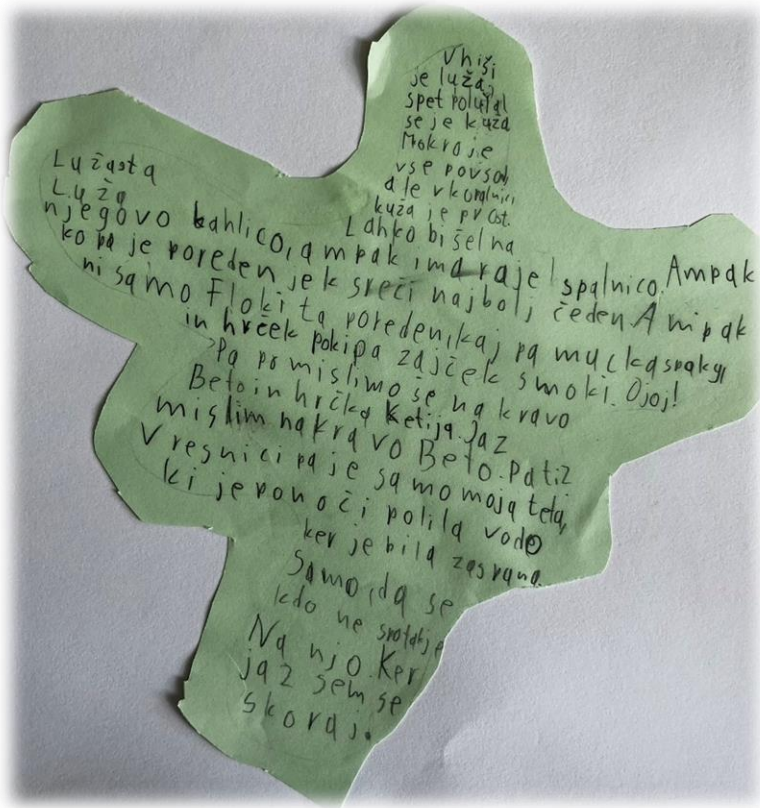 Lužasta
Luža
V hiši
je luža,
spet polulal
se je kuža
Mokro je
vse povsod
a le v kopalnici
kuža je prost.
Lahko bi šel na
njegovo kahlico, ampak ima raje spalnico. Ampak
ko pa je poreden je k sreči najbolj čeden Ampak
ni samo Floki ta poreden kaj pa mucka
in hrček pokipa zajček smoki. Ojoj!
Pa pomislimo še na kravo
Beto in hrčka Ketija. Jaz
mislim na kravo Beto. Pa ti?
V resnici pa je samo moja teta,
ki je ponoči polila vodo
ker je bila zaspana.
Samo, da se
kdo ne spotakne
Na njo. Ker
jaz sem se
skoraj.